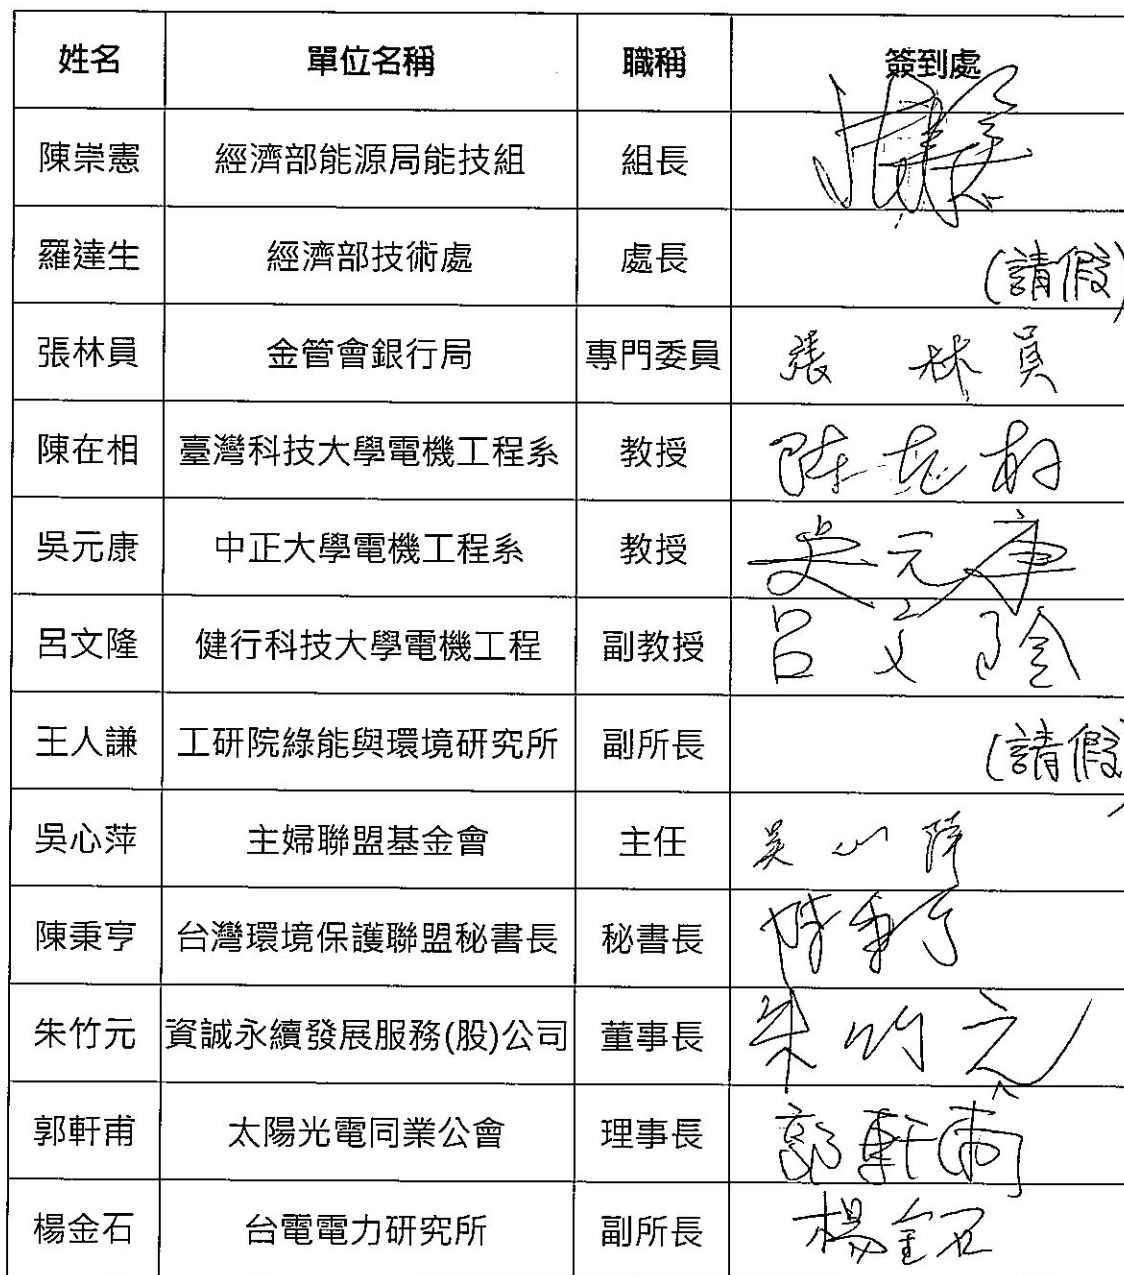 姓名 單位名稱 職稱 簽到處
陳崇憲 經濟部能源局能技組 組長
羅達生 經濟部技術處 處長 (請假)
張林員 金管會銀行局 專門委員 張林員
陳在相 臺灣科技大學電機工程系 教授 陈在相
吳元康 中正大學電機工程系 教授 吴元康
呂文隆 健行科技大學電機工程 副教授 呂文隆
王人謙 工研院綠能與環境研究所 副所長 (請假)
吳心萍 主婦聯盟基金會 主任 吳心萍
陳秉亨 台灣環境保護聯盟秘書長 秘書長 陳秉亨
朱竹元 資誠永續發展服務(股)公司 董事長 朱竹元
郭軒甫 太陽光電同業公會 理事長 郭軒甫
楊金石 台電電力研究所 副所長 楊金石